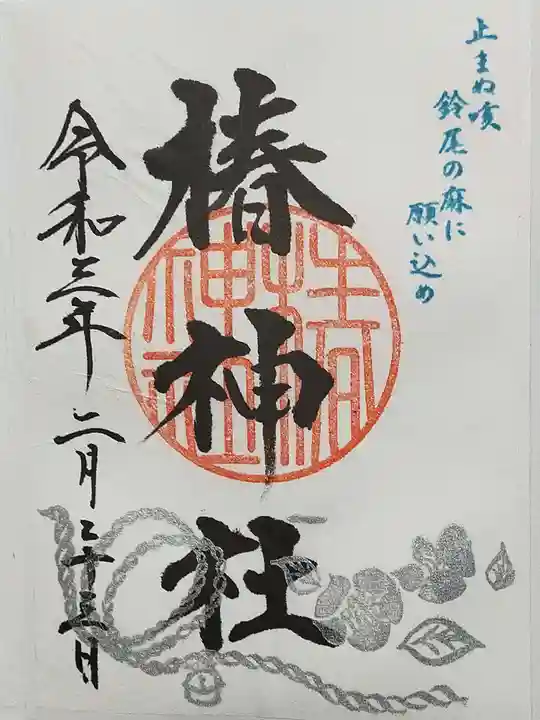 止まぬ咳
鈴尾の麻に
願い込め
椿神社
令和三年二月二十三日